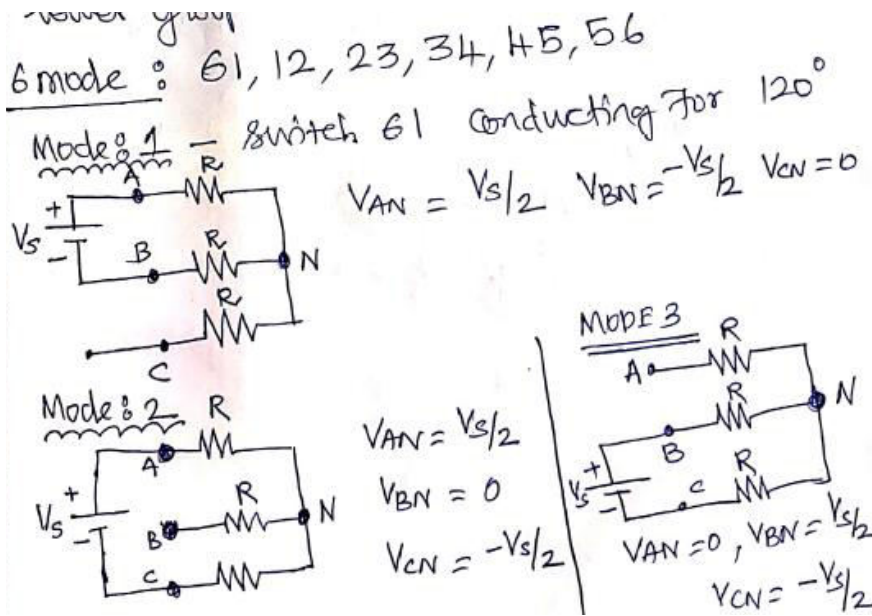 6 mode : 61, 12, 23, 34, 45, 56
Mode: 1 - switch 61 conducting for 120°
A R
VAN = VS/2 VBN = -VS/2 VCN = 0
+
VS
-
B R N
R
C
Mode: 2 R
A
VS +
-
B R N
C
VAN = VS/2
VBN = 0
VCN = -VS/2
MODE 3
A R
R N
B
VS +
-
C R
VAN = 0, VBN = VS/2
VCN = -VS/2